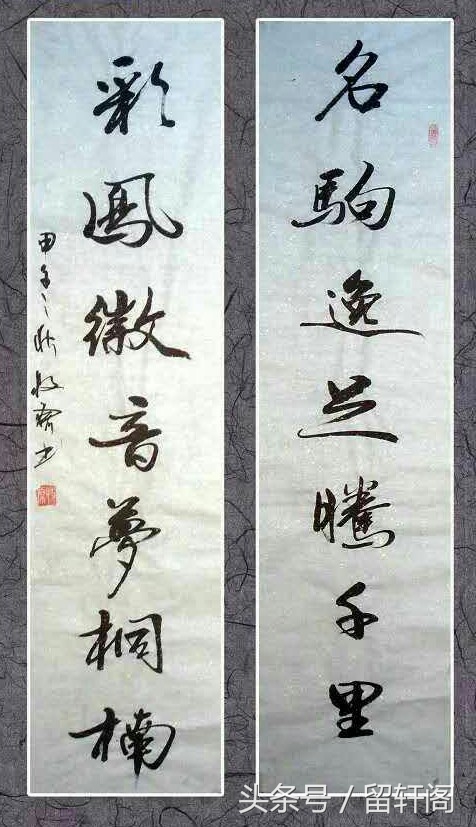 名駒逸足騰千里
彩鳳徽音夢桐楠
甲午之秋
头条号 / 留轩阁